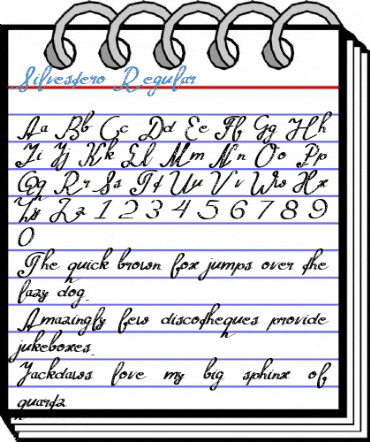 Silvestero Regular
Aa Bb Cc Dd Ee Ff Gg Hh
Ii Jj Kk Ll Mm Nn Oo Pp
Qq Rr Ss Tt Uu Vv Ww Xx
Yy Zz 1 2 3 4 5 6 7 8 9
0
The quick brown fox jumps over the
lazy dog.
Amazingly few discotheques provide
jukeboxes.
Jackdaws love my big sphinx of
quartz